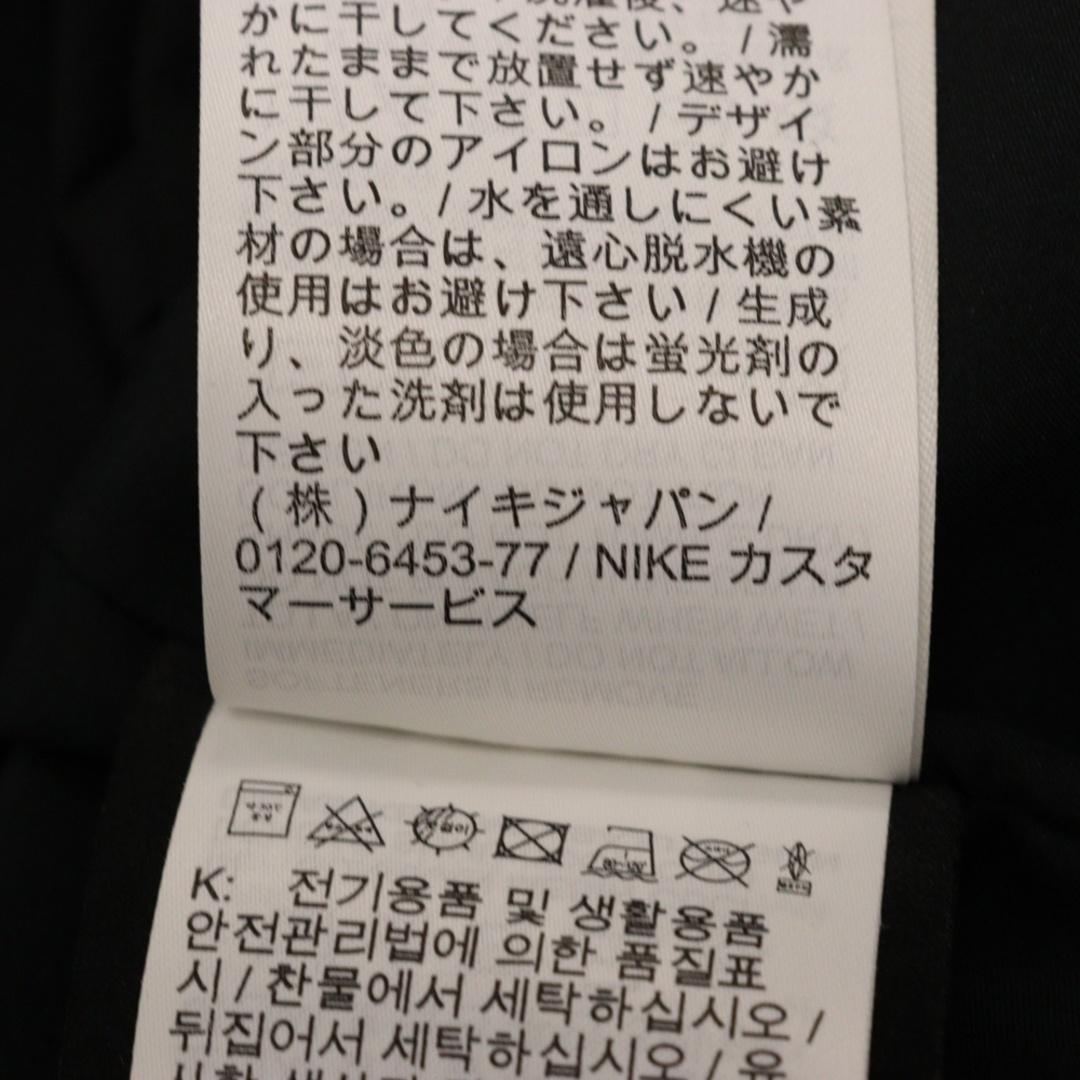 かに干してください。 / 濡
れたままで放置せず速やか
に干して下さい。 / デザイ
ン部分のアイロンはお避け
下さい。 / 水を通しにくい素
材の場合は、遠心脱水機の
使用はお避け下さい / 生成
り、淡色の場合は蛍光剤の
入った洗剤は使用しないで
下さい
(株)ナイキジャパン /
0120-6453-77 / NIKE カスタ
マーサービス
K: 전기용품 및 생활용품
안전관리법에 의한 품질표
시 / 찬물에서 세탁하십시오 /
뒤집어서 세탁하십시오 / 유